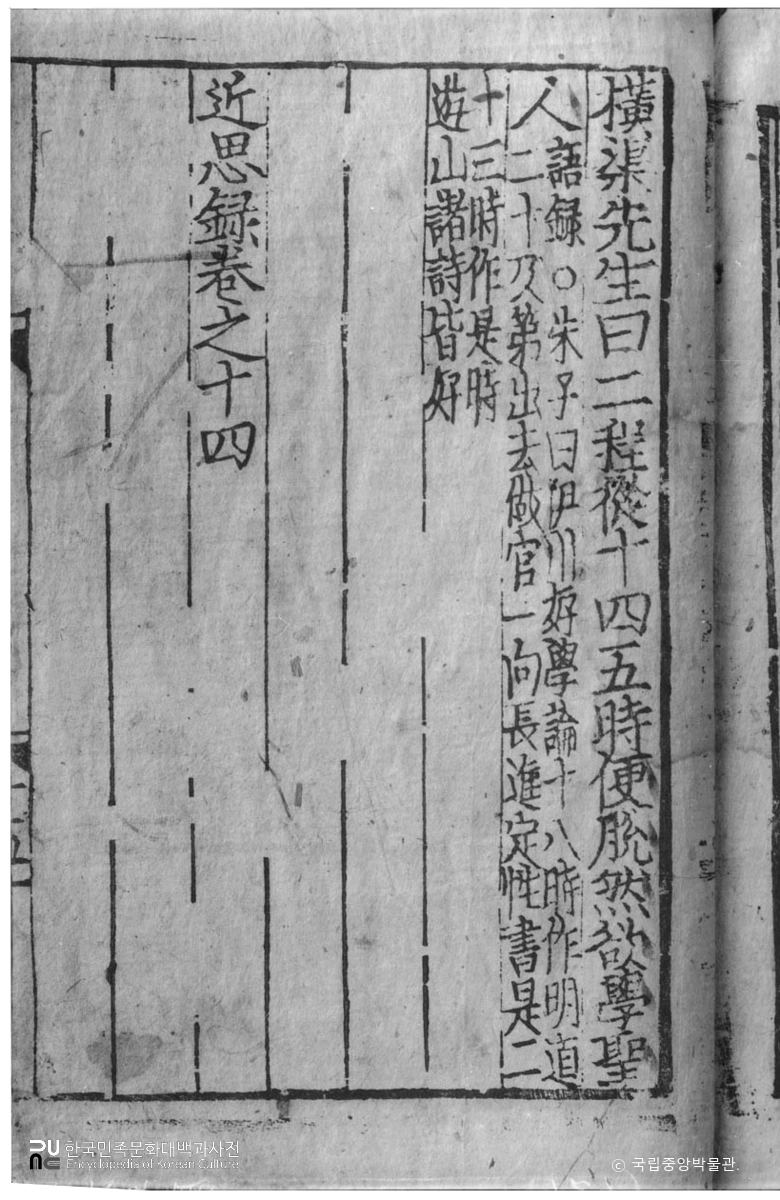 橫渠先生曰二程從十四五時便脫然欲學聖
人
語錄○朱子曰伊川好學論十八時作明道
二十及第出去做官一向長進定性書是二
十三時作是時
遊山諸詩皆好
近思錄卷之十四
한국민족문화대백과사전
Encyclopedia of Korean Culture
© 국립중앙박물관.